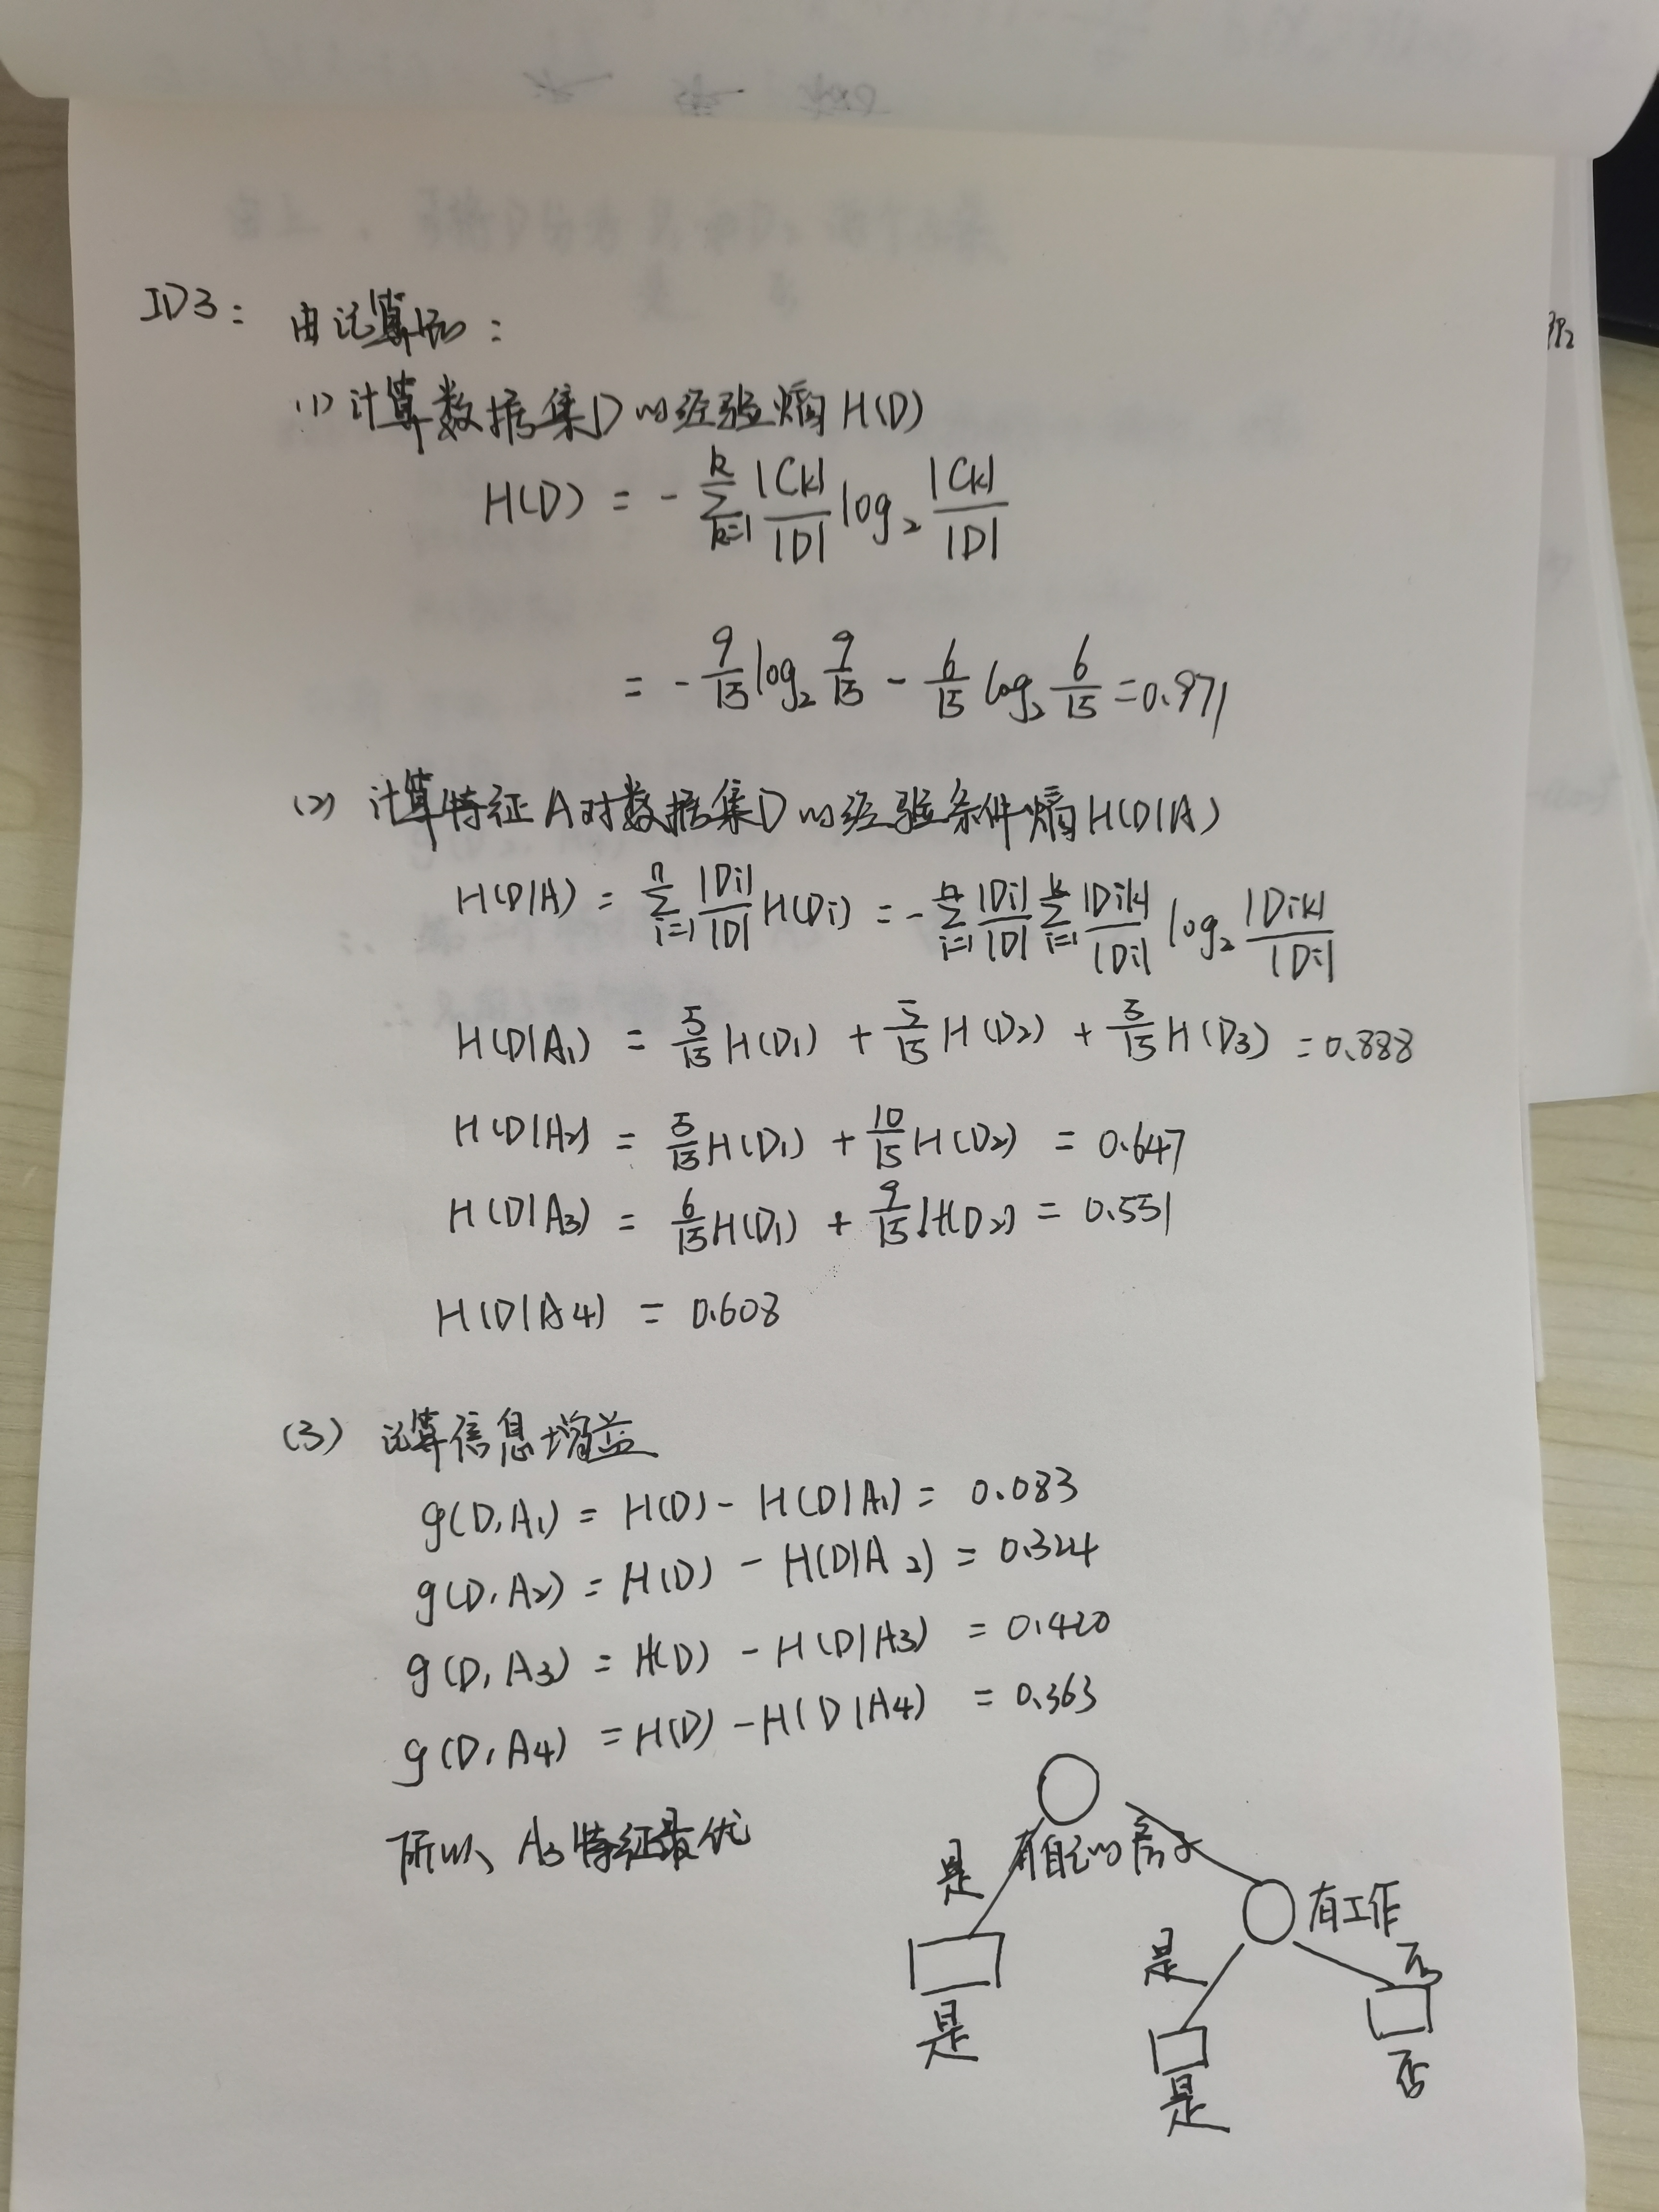 ID3: 由计算知:
(1) 计算数据集D的经验熵H(D)
H(D) = - ∑_{k=1}^{k} |Ck|/|D| log₂ |Ck|/|D|
= - 9/15 log₂ 9/15 - 6/15 log₂ 6/15 = 0.971
(2) 计算特征A对数据集D的经验条件熵H(D|A)
H(D|A) = ∑_{i=1}^{n} |Di|/|D| H(Di) = - ∑_{i=1}^{n} |Di|/|D| ∑_{i=1}^{k} |Dik|/|Di| log₂ |Dik|/|Di|
H(D|A₁) = 5/15 H(D₁) + 5/15 H(D₂) + 5/15 H(D₃) = 0.888
H(D|A₂) = 5/15 H(D₁) + 10/15 H(D₂) = 0.647
H(D|A₃) = 6/15 H(D₁) + 9/15 H(D₂) = 0.551
H(D|A4) = 0.608
(3) 计算信息增益
g(D,A₁) = H(D) - H(D|A₁) = 0.083
g(D,A₂) = H(D) - H(D|A₂) = 0.324
g(D,A₃) = H(D) - H(D|A3) = 0.420
g(D,A4) = H(D) - H(D|A4) = 0.363
所以、A₃特征最优
是 有自己的房子
有工作
是 否
是
是 否